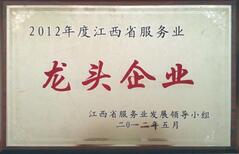 2012年度江西省服务业
龙头企业
江西省服务业发展领导小组
二〇一二年五月